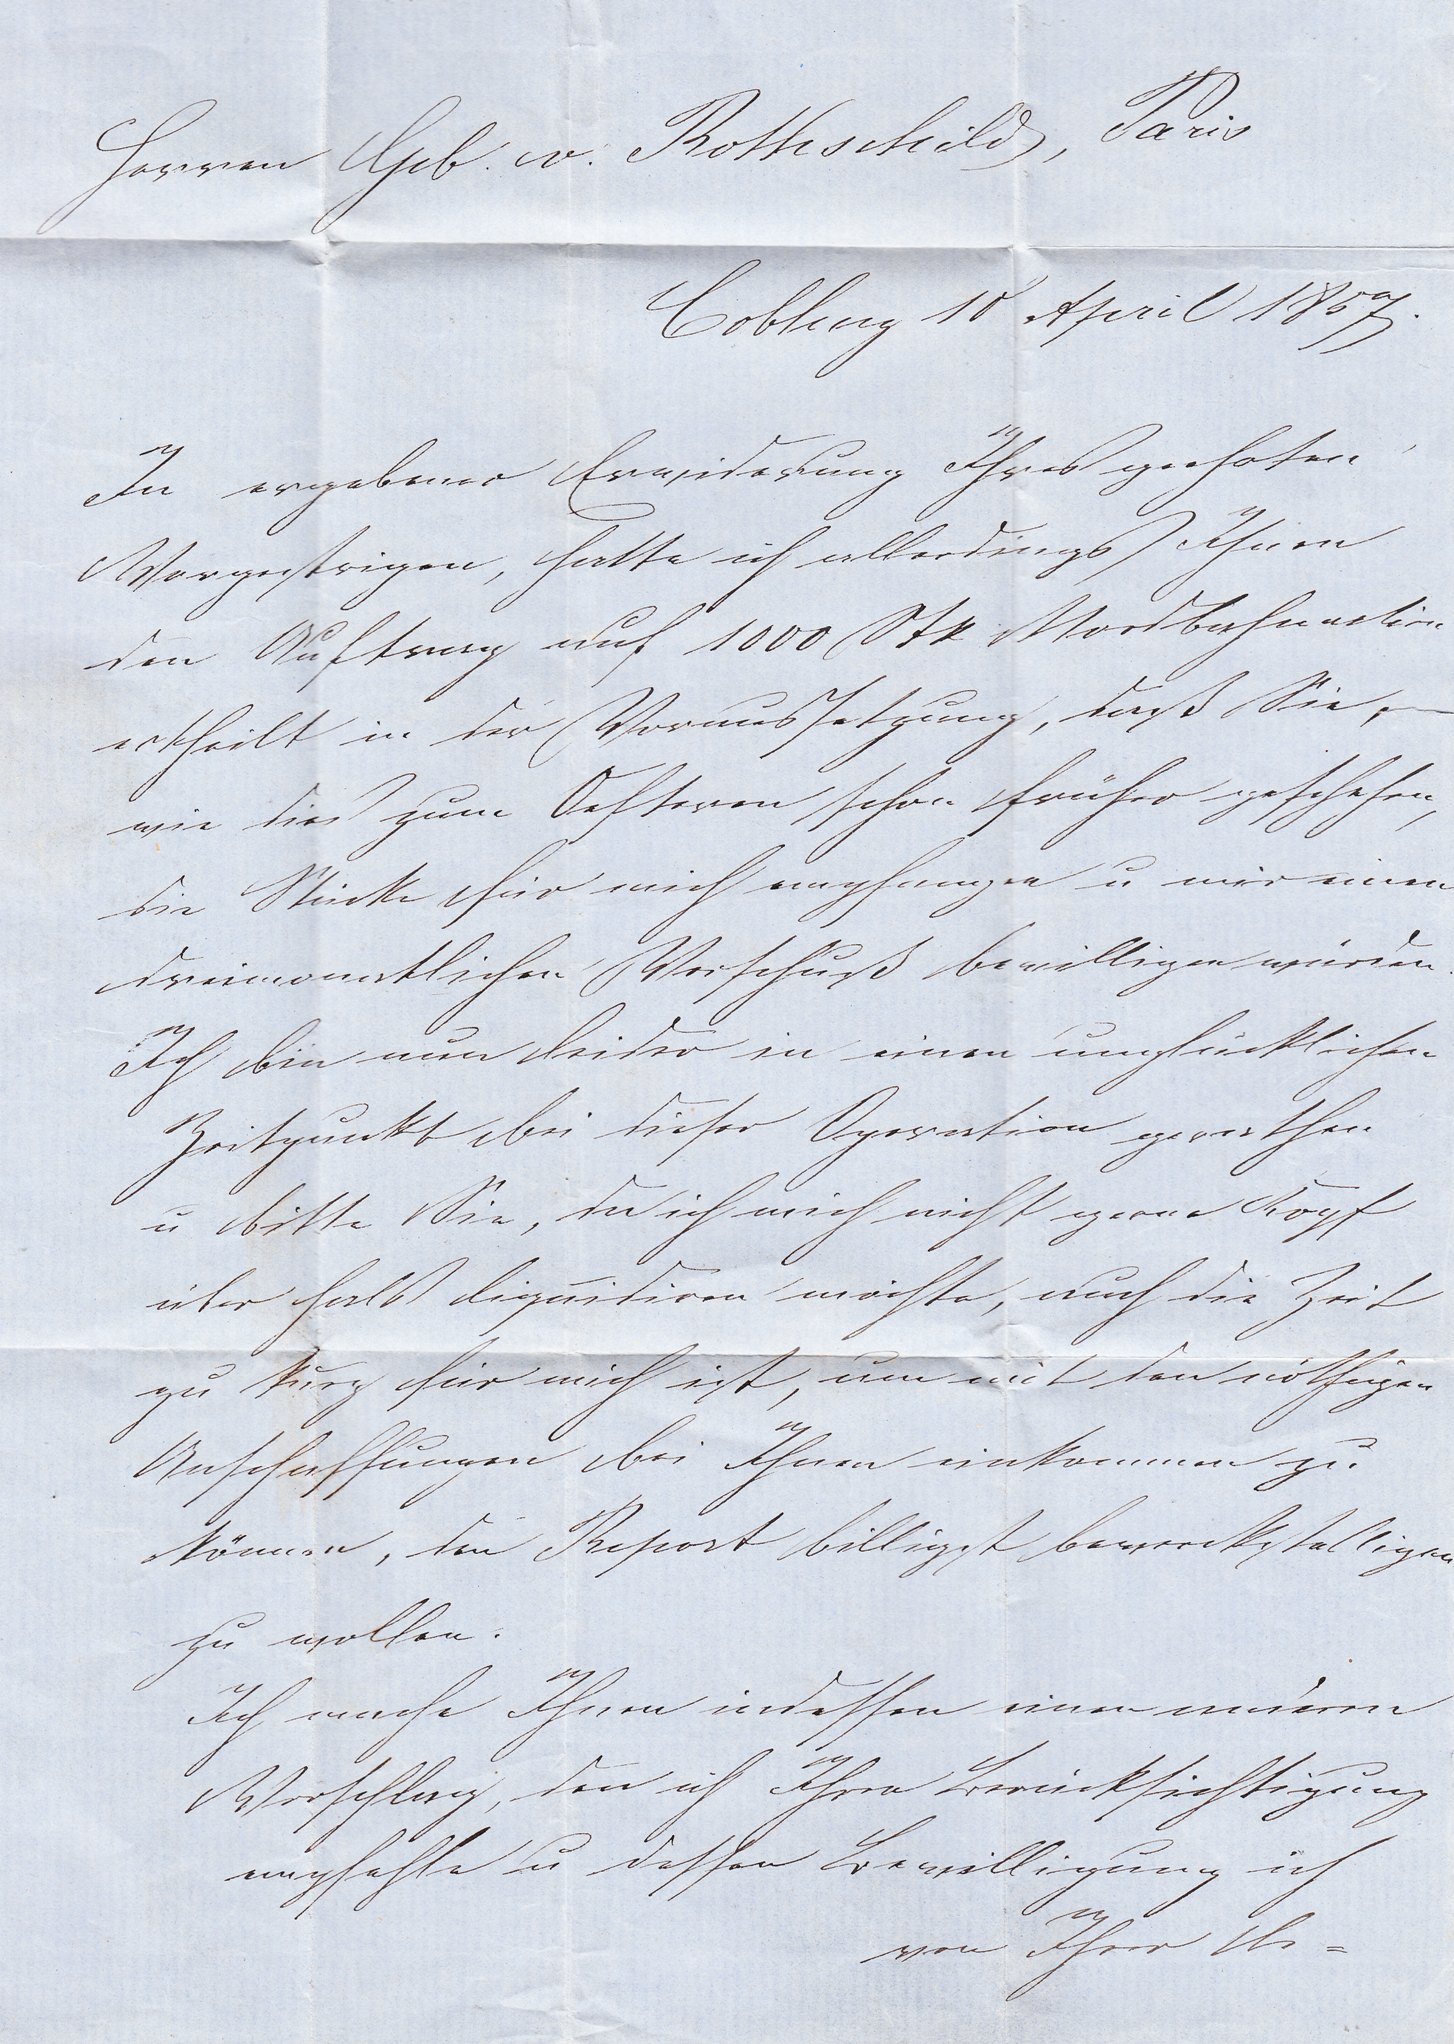 Herren Geb. v. Rothschild, Paris
Coblenz 10 April 1857.
In ergebener Erwiderung Ihres geehrten
Vorgestrigen, hatte ich allerdings Ihnen
den Auftrag auf 1000 Stk Nordbahnactien
ertheilt in der Voraussetzung, daß Sie,
wie dies zum Oefteren schon früher geschehen,
die Stücke für mich empfangen u mir einen
dreimonatlichen Vorschuß bewilligen würden.
Ich bin nun leider in einen unglücklichen
Zeitpunkt bei dieser Operation gerathen
u bitte Sie, da ich mich nicht gerne Kopf
über Hals liquidiren möchte, auch die Zeit
zu kurz für mich ist, um mit den nöthigen
Anschaffungen bei Ihnen einkommen zu
können, den Report billigst bewerkstelligen
zu wollen.
Ich mache Ihnen indessen einen anderen
Vorschlag, den ich Ihrer Berücksichtigung
empfehle u dessen Bewilligung ich
von Ihrer